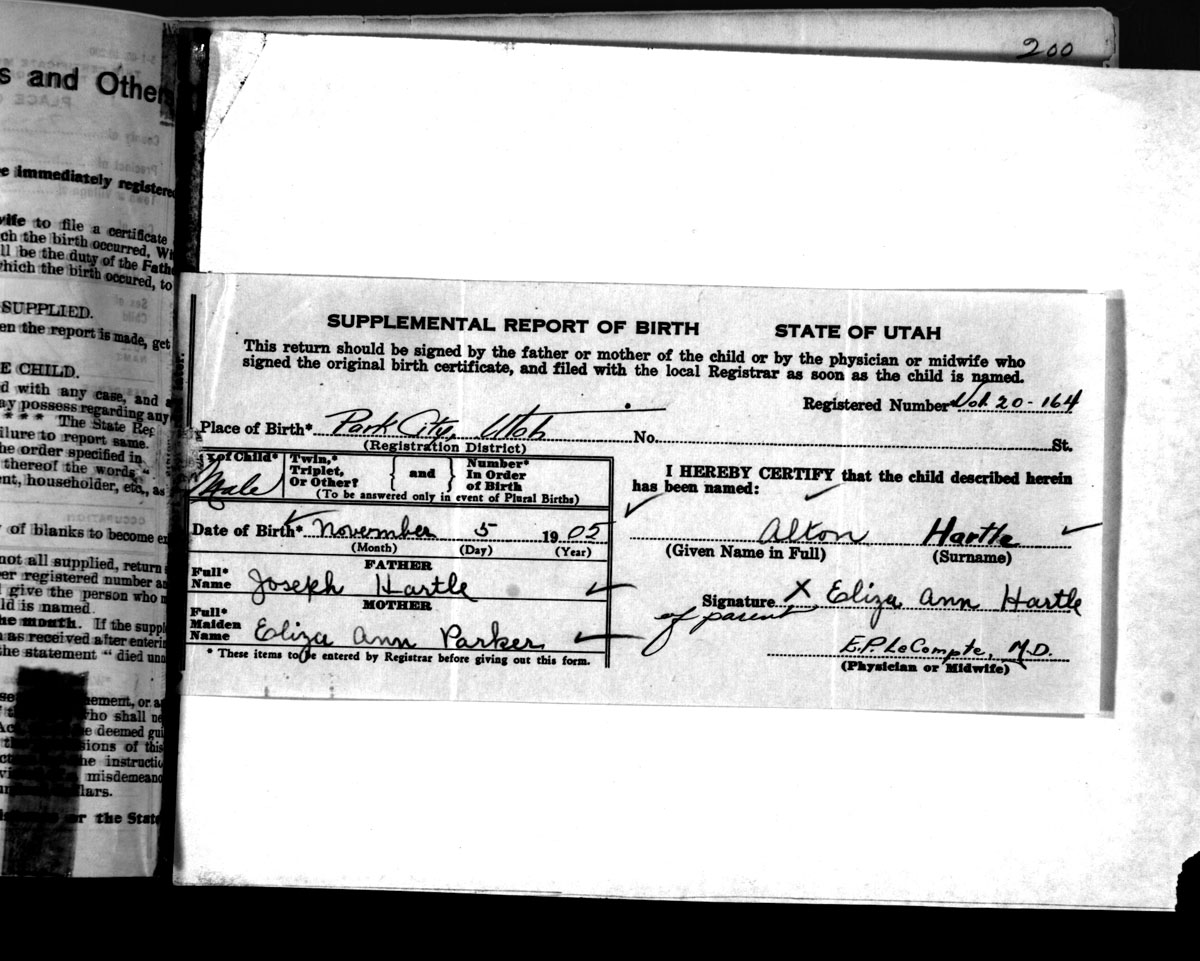 200
s and Othe
e immediately registere
wife to file a certificate
ch the birth occurred, Wi
ll be the duty of the Fath
which the birth occured, to
SUPPLIED.
en the report is made, get
E CHILD.
d with any case, and a
ay possess regarding any
* * * * The State Reg
ilure to report same.
he order specified in
thereof the words "
ent, householder, etc., as
of blanks to become ex
not all supplied, return
er registered number an
give the person who m
ld is named.
he month. If the suppl
as received after enterin
the statement " died unn
ement, or a
who shall ne
e deemed gui
sions of this
he instructio
misdemeano
lars.
r the State
SUPPLEMENTAL REPORT OF BIRTH STATE OF UTAH
This return should be signed by the father or mother of the child or by the physician or midwife who
signed the original birth certificate, and filed with the local Registrar as soon as the child is named.
Registered Number Vol. 20-164
Place of Birth* Park City, Utah No. St.
(Registration District)
x of Child* Male
Twin,* Triplet, Or Other? { and } Number* In Order of Birth
(To be answered only in event of Plural Births)
Date of Birth* November 5 1905
(Month) (Day) (Year)
FATHER
Full* Name Joseph Hartle
MOTHER
Full* Maiden Name Eliza Ann Parker
* These items to be entered by Registrar before giving out this form.
I HEREBY CERTIFY that the child described herein
has been named:
Alton Hartle
(Given Name in Full) (Surname)
Signature X Eliza Ann Hartle
of parent
E.P. LeCompte, M.D.
(Physician or Midwife)